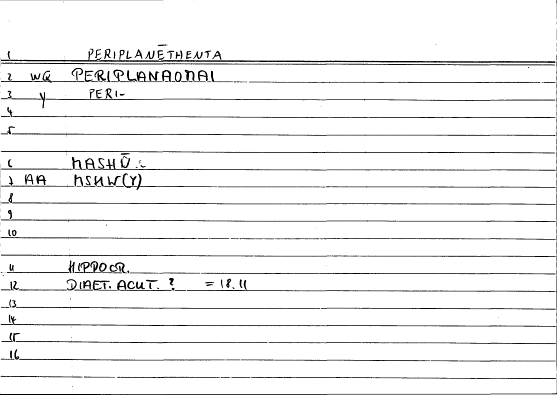 1 PERIPLANĒTHENTA
2 WQ PERIPLANAOMAI
3 Y PERI-
4
5
6 MASHŪ
7 AA MSHW(Y)
8
9
10
11 HIPPOCR.
12 DIAET. ACUT. ? = 18.11
13
14
15
16